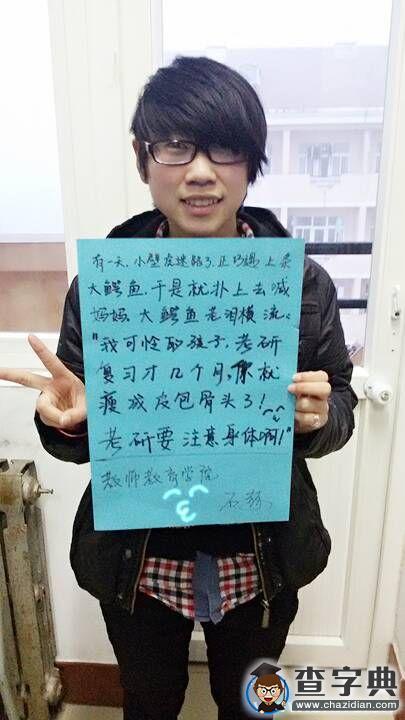 有一天,小壁虎迷路了,正巧遇上条
大鳄鱼,于是就扑上去喊
妈妈,大鳄鱼老泪横流:
"我可怜的孩子,考研
复习才几个月,你就
瘦成皮包骨头了!
考研要注意身体啊!"
教师教育学院
查字典
www.chazidian.com